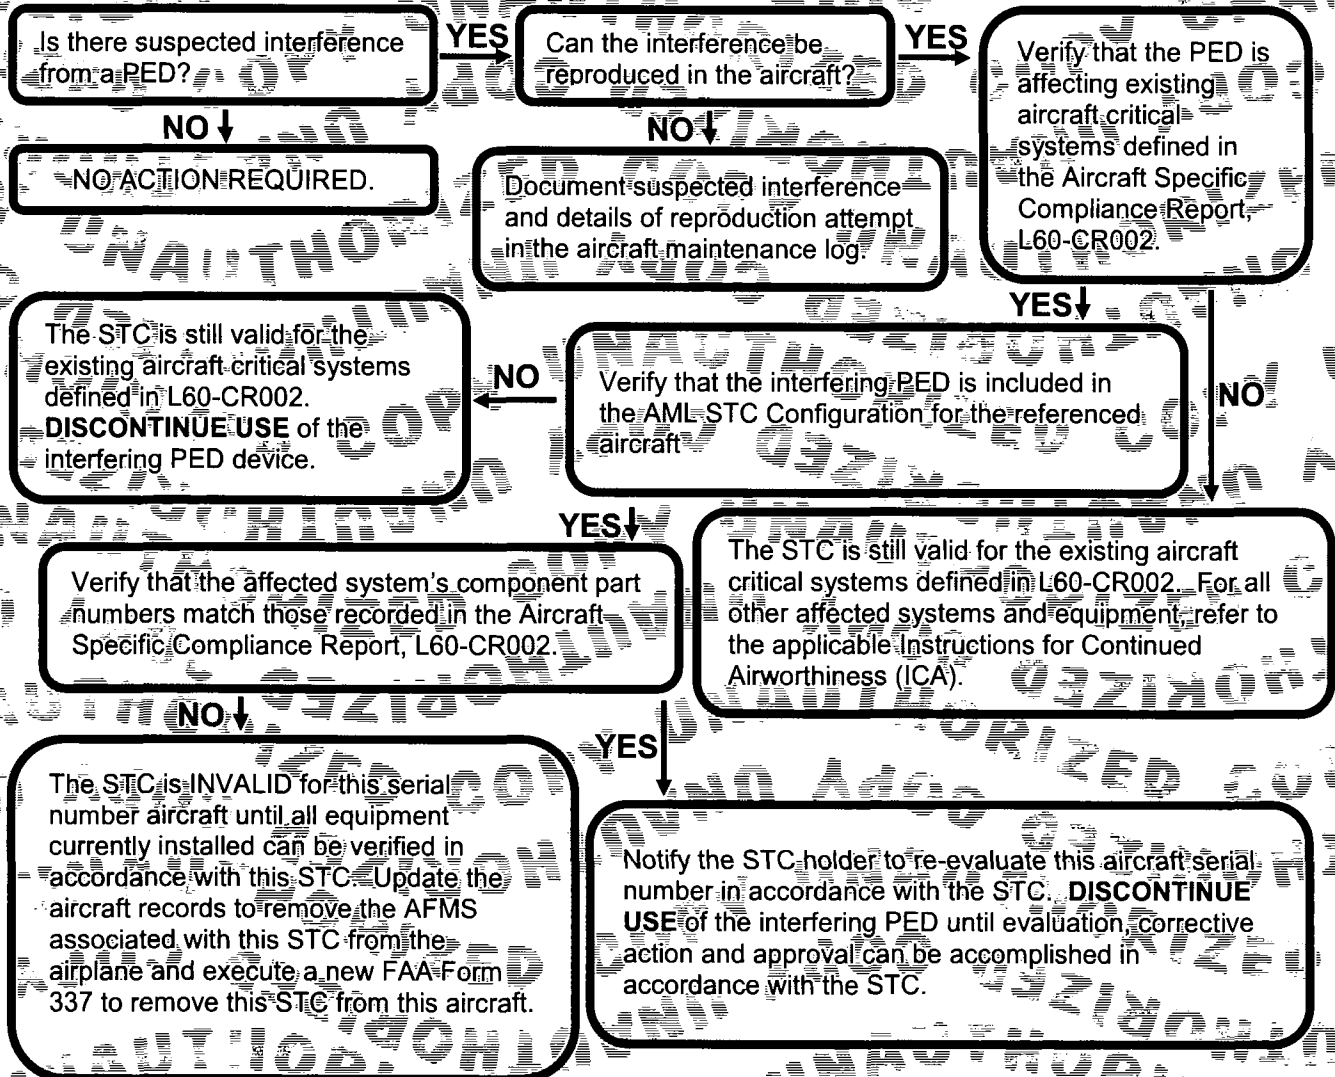 Is there suspected interference
from a PED?
YES
Can the interference be
reproduced in the aircraft?
YES
Verify that the PED is
affecting existing
aircraft critical
systems defined in
the Aircraft Specific
Compliance Report,
L60-CR002.
NO
NO ACTION REQUIRED.
NO
Document suspected interference
and details of reproduction attempt
in the aircraft maintenance log.
YES
NO
The STC is still valid for the
existing aircraft critical systems
defined in L60-CR002.
DISCONTINUE USE of the
interfering PED device.
NO
Verify that the interfering PED is included in
the AML STC Configuration for the referenced
aircraft
YES
Verify that the affected system's component part
numbers match those recorded in the Aircraft
Specific Compliance Report, L60-CR002.
The STC is still valid for the existing aircraft
critical systems defined in L60-CR002. For all
other affected systems and equipment, refer to
the applicable Instructions for Continued
Airworthiness (ICA).
NO
YES
The STC is INVALID for this serial
number aircraft until all equipment
currently installed can be verified in
accordance with this STC. Update the
aircraft records to remove the AFMS
associated with this STC from the
airplane and execute a new FAA Form
337 to remove this STC from this aircraft.
Notify the STC holder to re-evaluate this aircraft serial
number in accordance with the STC. DISCONTINUE
USE of the interfering PED until evaluation, corrective
action and approval can be accomplished in
accordance with the STC.
UNAUTHORIZED COPY